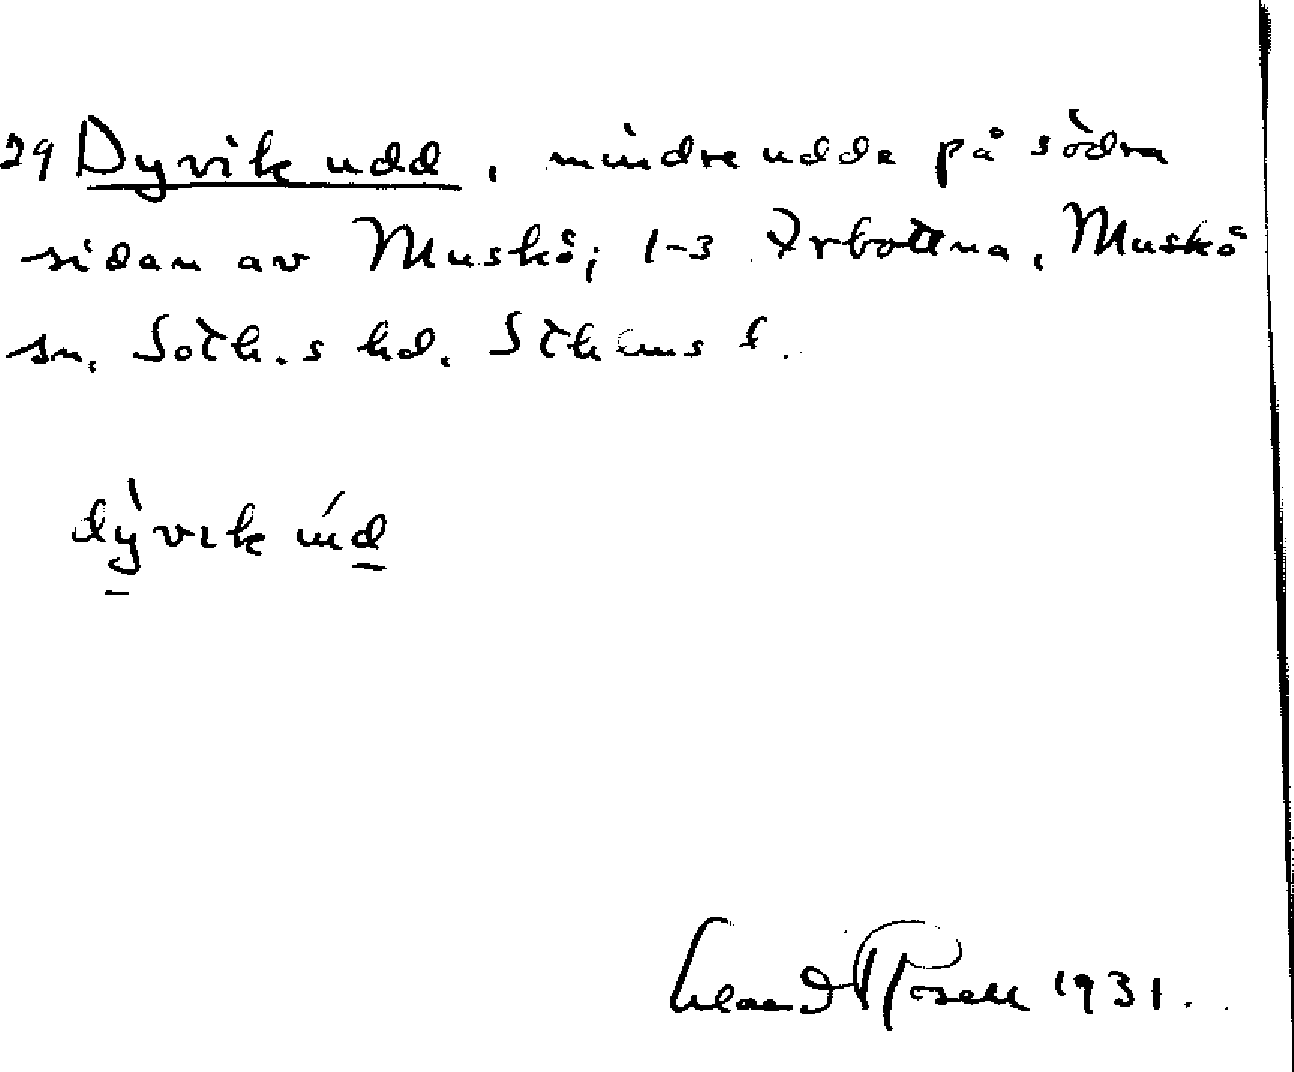 29 Dyvik udd, mindre udde på södra
sidan av Muskö; 1-3 Arbottna, Muskö
sn. Soth.s hd. Sthlms l.
dỳ̱vık úḏ
Rosell 1931.